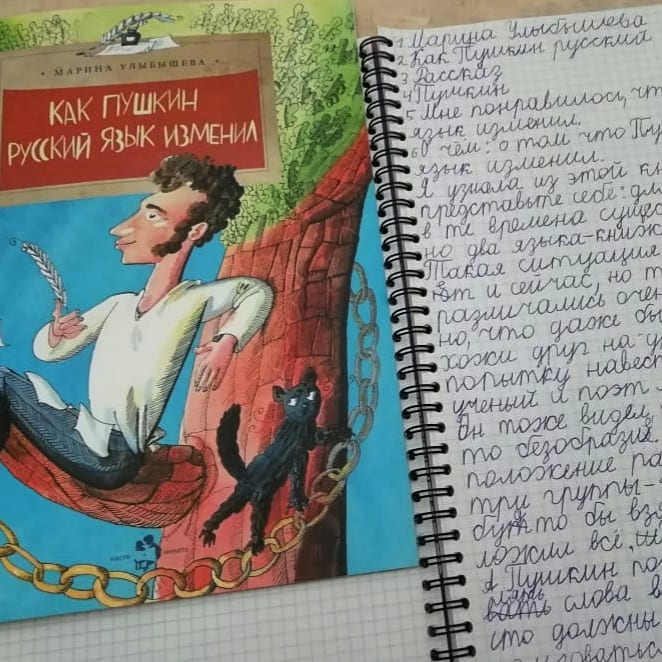 МАРИНА УЛЫБЫШЕВА
КАК ПУШКИН
РУССКИЙ ЯЗЫК ИЗМЕНИЛ
НАСТЯ
НИКИТА
1 Марина Улыбышева
2 Как Пушкин русский
3 Рассказ
4 Пушкин
5 Мне понравилось, чт
язык изменил.
6 О чём: о том что Пу
язык изменил.
Я узнала из этой кн
представьте себе: дл
в те времена сущес
но два языка-книж
Такая ситуация
ют и сейчас, но т
различались очен
но, что даже бы
хожи друг на др
попытку навес
ученый и поэт
Он тоже видел,
то безобразие.
положение ра
три группы-
будто бы взя
ложил все,
А Пушкин по
слова в
сто должны